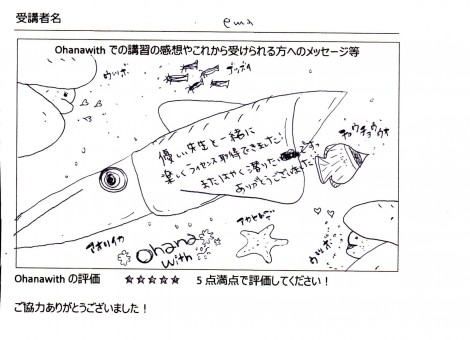 受講者名 ema
Ohanawith での講習の感想やこれから受けられる方へのメッセージ等
ウツボ
チョウチョウウオ
優しい先生と一緒に
楽しくライセンス取得できました!
またはやく潜りたいです。
ありがとうございました
アオリイカ
Ohana
with
アカヒトデ
ウツボ
Ohanawith の評価 ☆☆☆☆☆ 5 点満点で評価してください!
ご協力ありがとうございました!